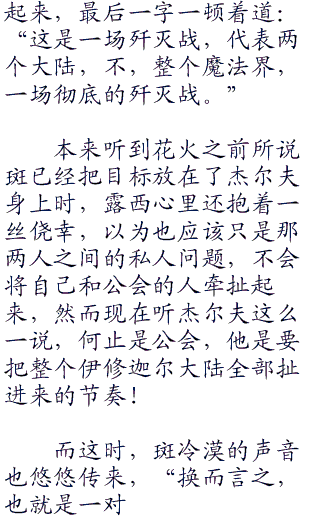 起来，最后一字一顿着道：
“这是一场歼灭战，代表两
个大陆，不，整个魔法界，
一场彻底的歼灭战。”
本来听到花火之前所说
斑已经把目标放在了杰尔夫
身上时，露西心里还抱着一
丝侥幸，以为也应该只是那
两人之间的私人问题，不会
将自己和公会的人牵扯起
来，然而现在听杰尔夫这么
一说，何止是公会，他是要
把整个伊修迦尔大陆全部扯
进来的节奏！
而这时，斑冷漠的声音
也悠悠传来，“换而言之，
也就是一对